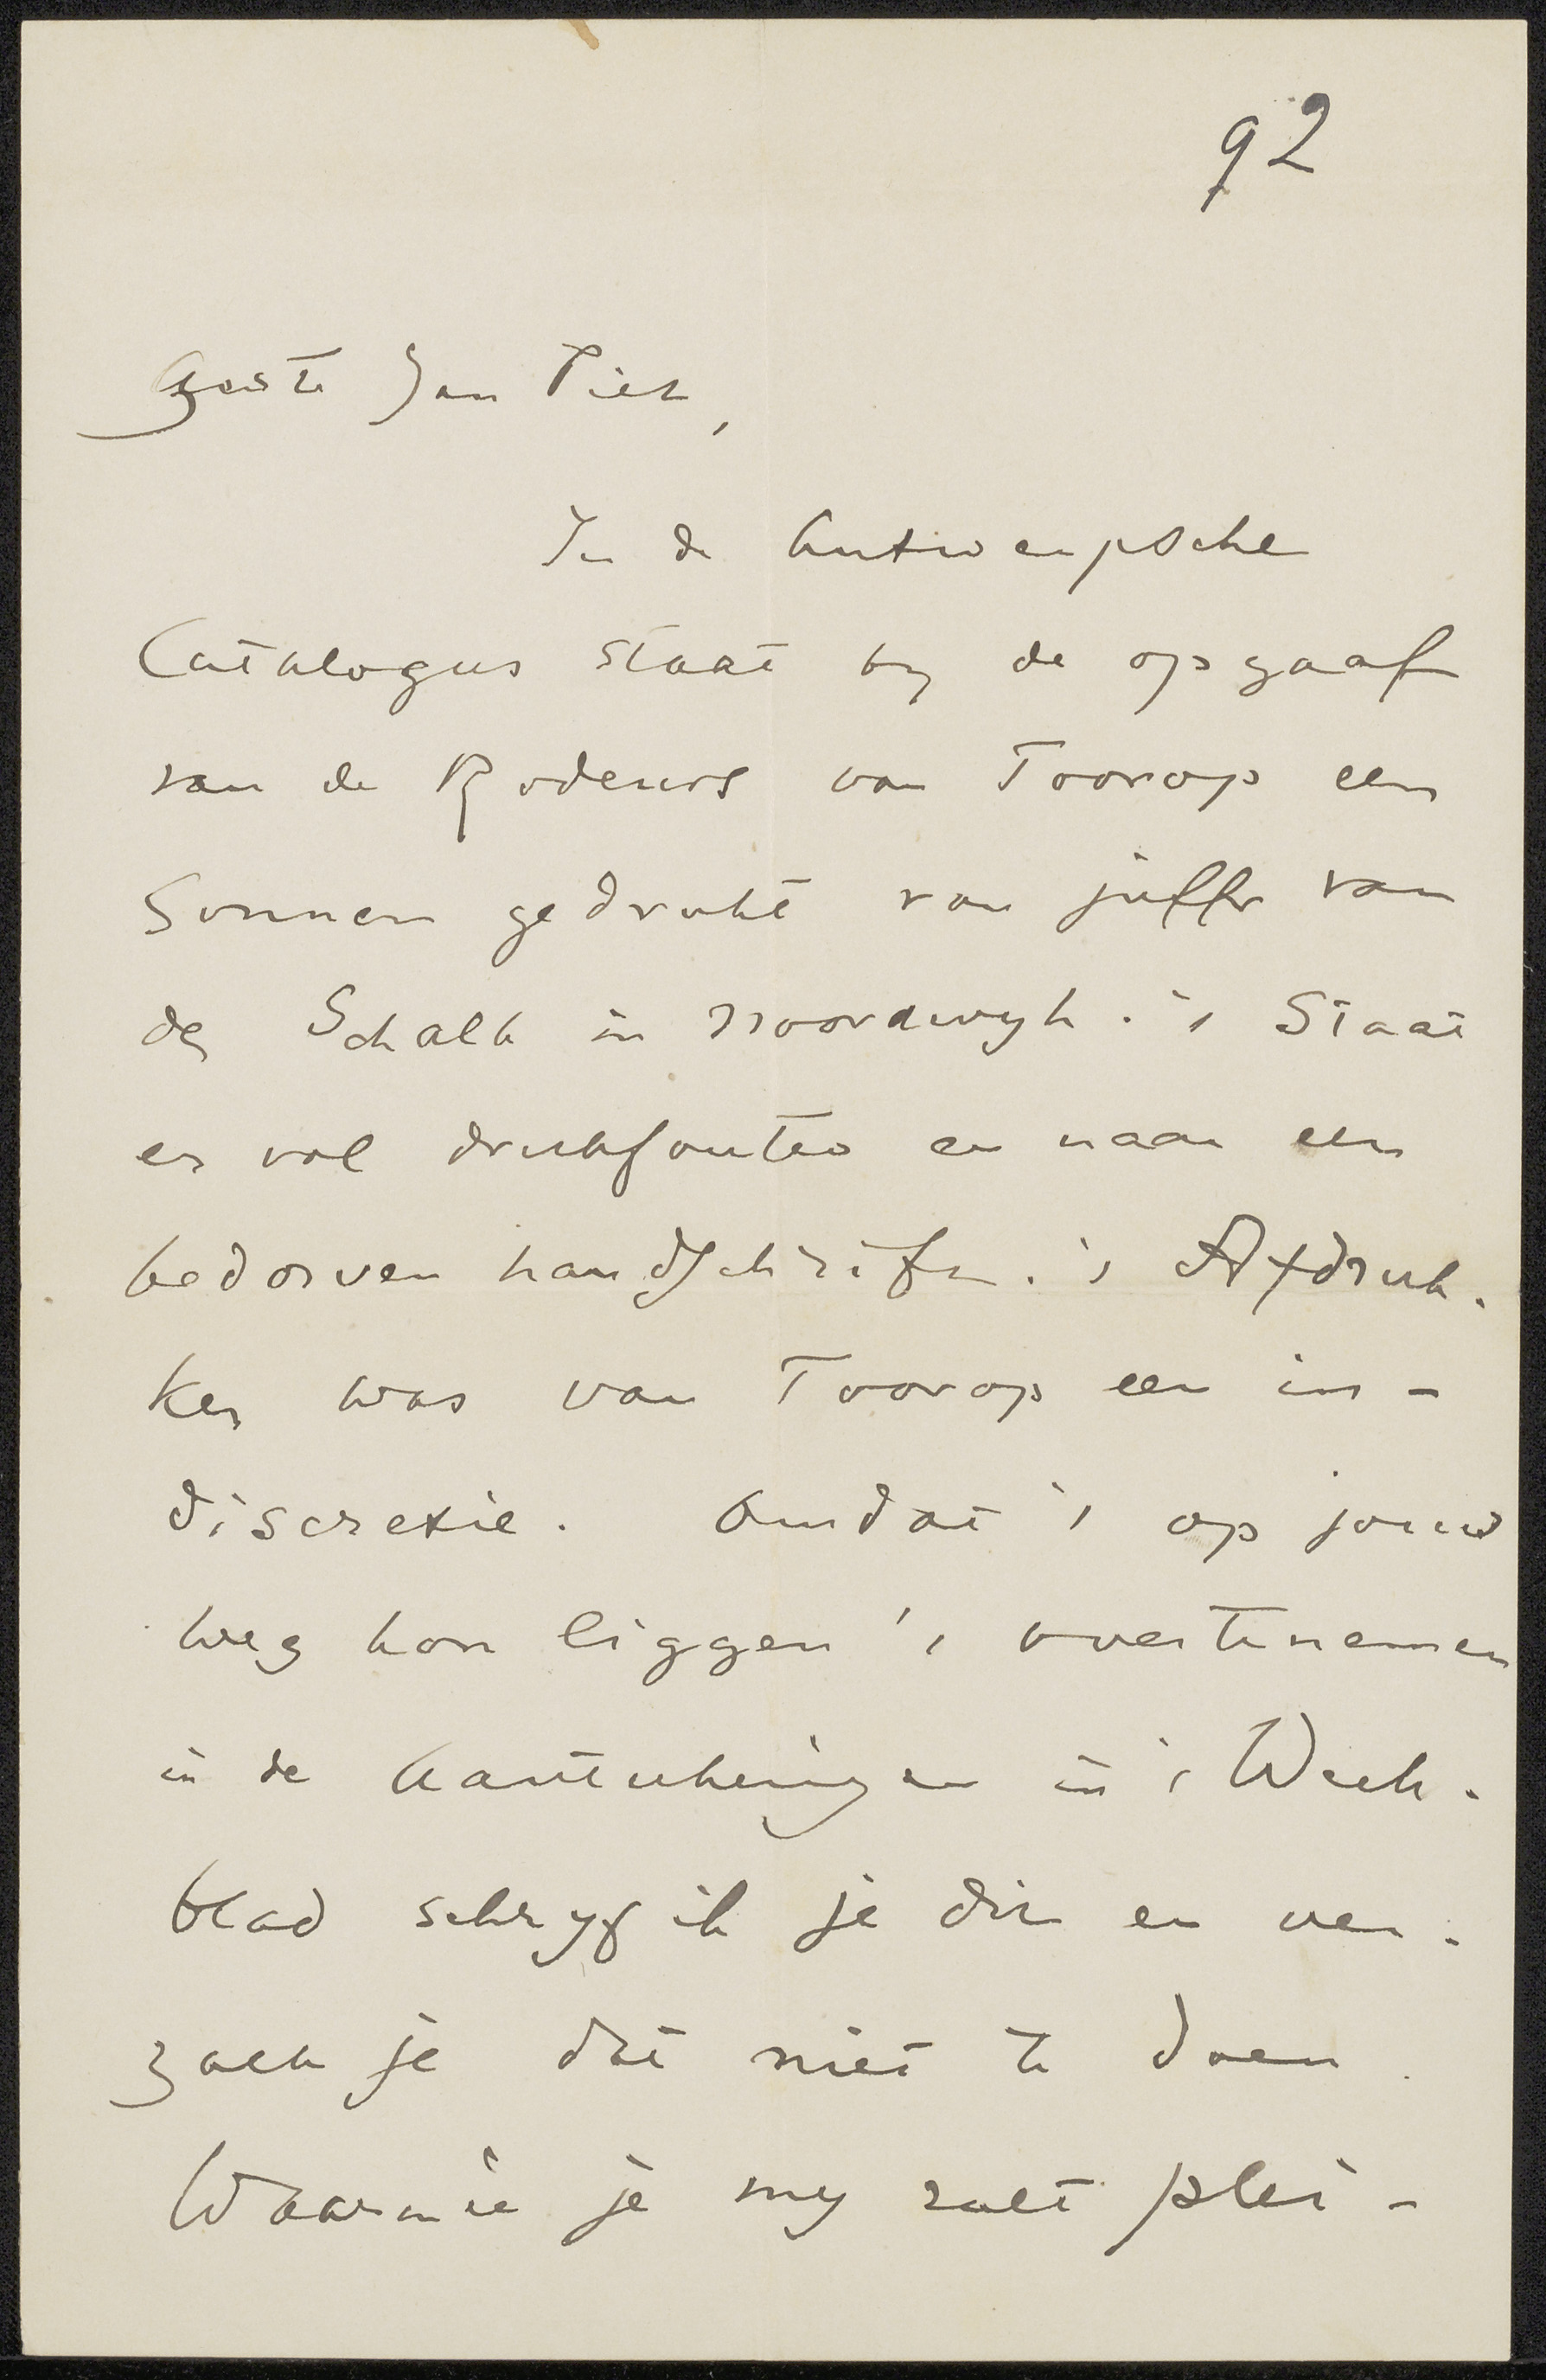 92
Beste Jan Piet,
In de Antwerpsche
Catalogus staat by de opgaaf
van de Rodeurs van Toorop een
Sonnen gedrukt van juffr van
der Schalk in Noordwyk. 't Staat
er vol drukfouten en naar een
bedorven handschrift. 't Afdruk-
ken was van Toorop een in-
discretie. Omdat 't op jouw
weg kon liggen 't overtenemen
in de Aanteekeningen in 't Week-
blad schryf ik je dit en ver-
zoek je dat niet te doen.
Waarmee je my zult plei-